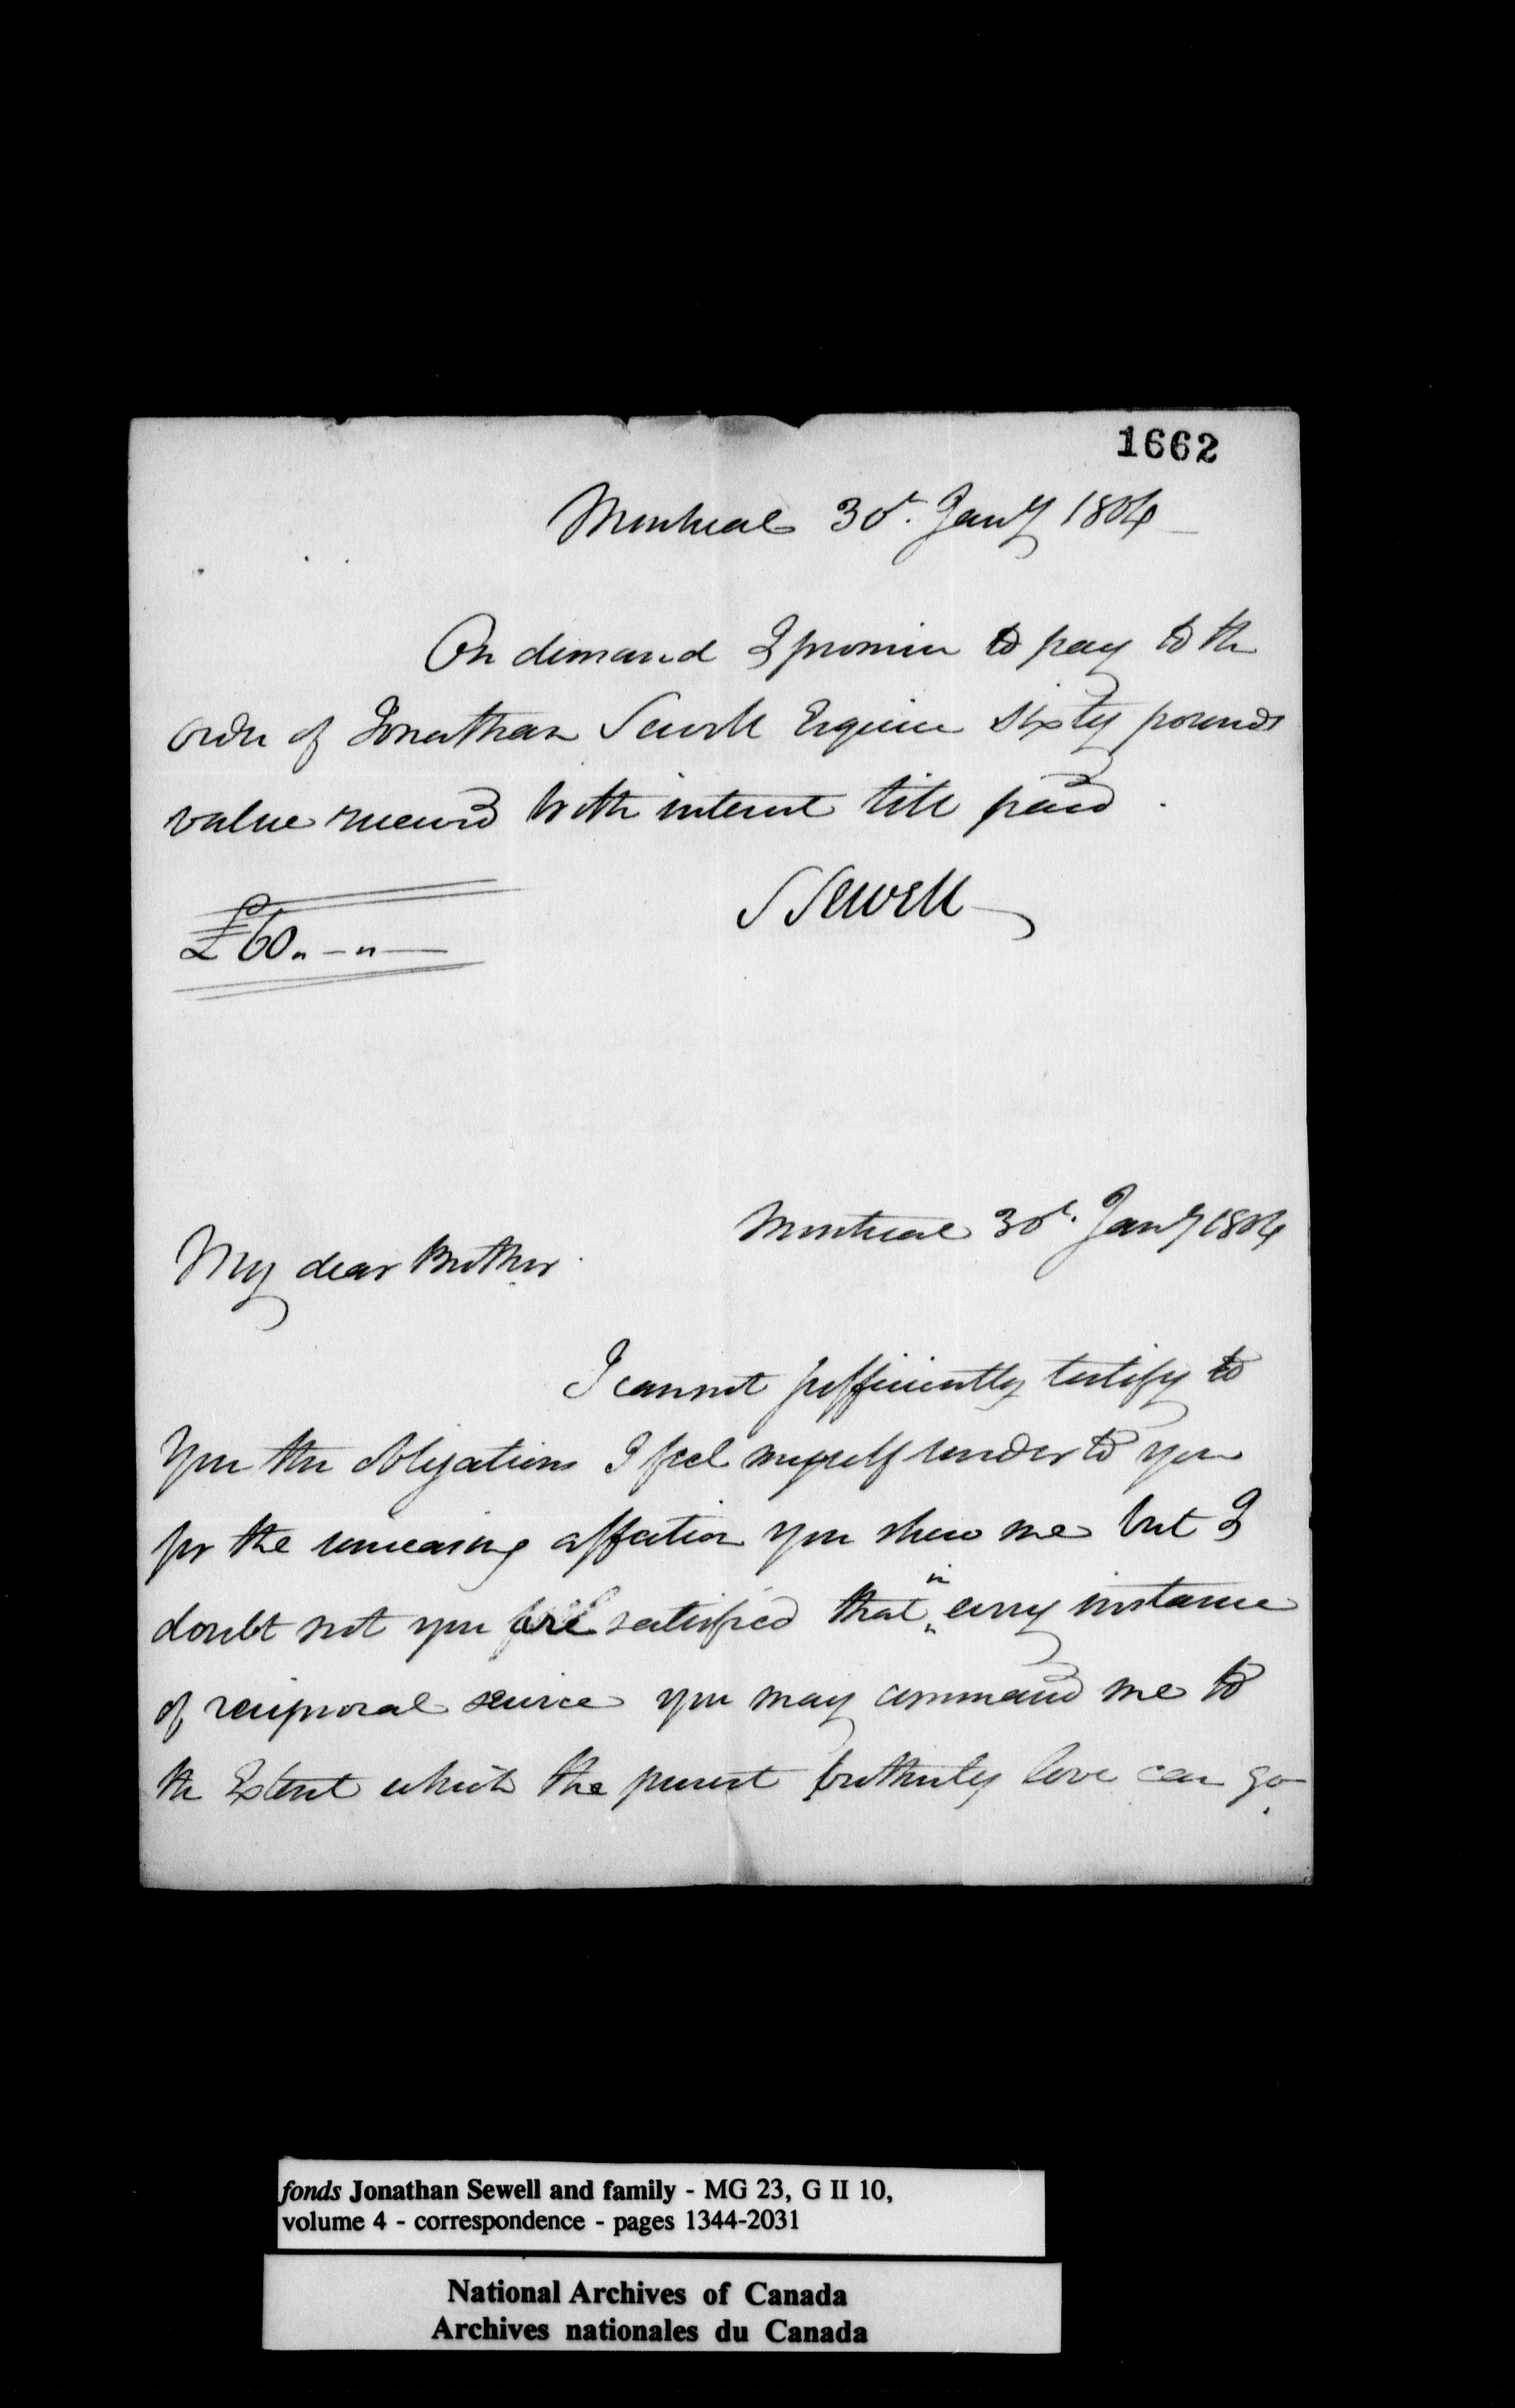 1662
Montreal 30th. Jany 1804
On demand I promise to pay to the
order of Jonathan Sewell Esquire sixty pounds
value received with interest till paid.
S Sewell
£60„-„-
Montreal 30th. Jany 1804
My dear Brother.
I cannot sufficiently testify to
you the obligations I feel myself under to you
for the unceasing affection you shew me but I
doubt not you feel satisfied that in every instance
of reciprocal service you may command me to
the Extent which the purest brotherly love can go.
fonds Jonathan Sewell and family - MG 23, G II 10,
volume 4 - correspondence - pages 1344-2031
National Archives of Canada
Archives nationales du Canada